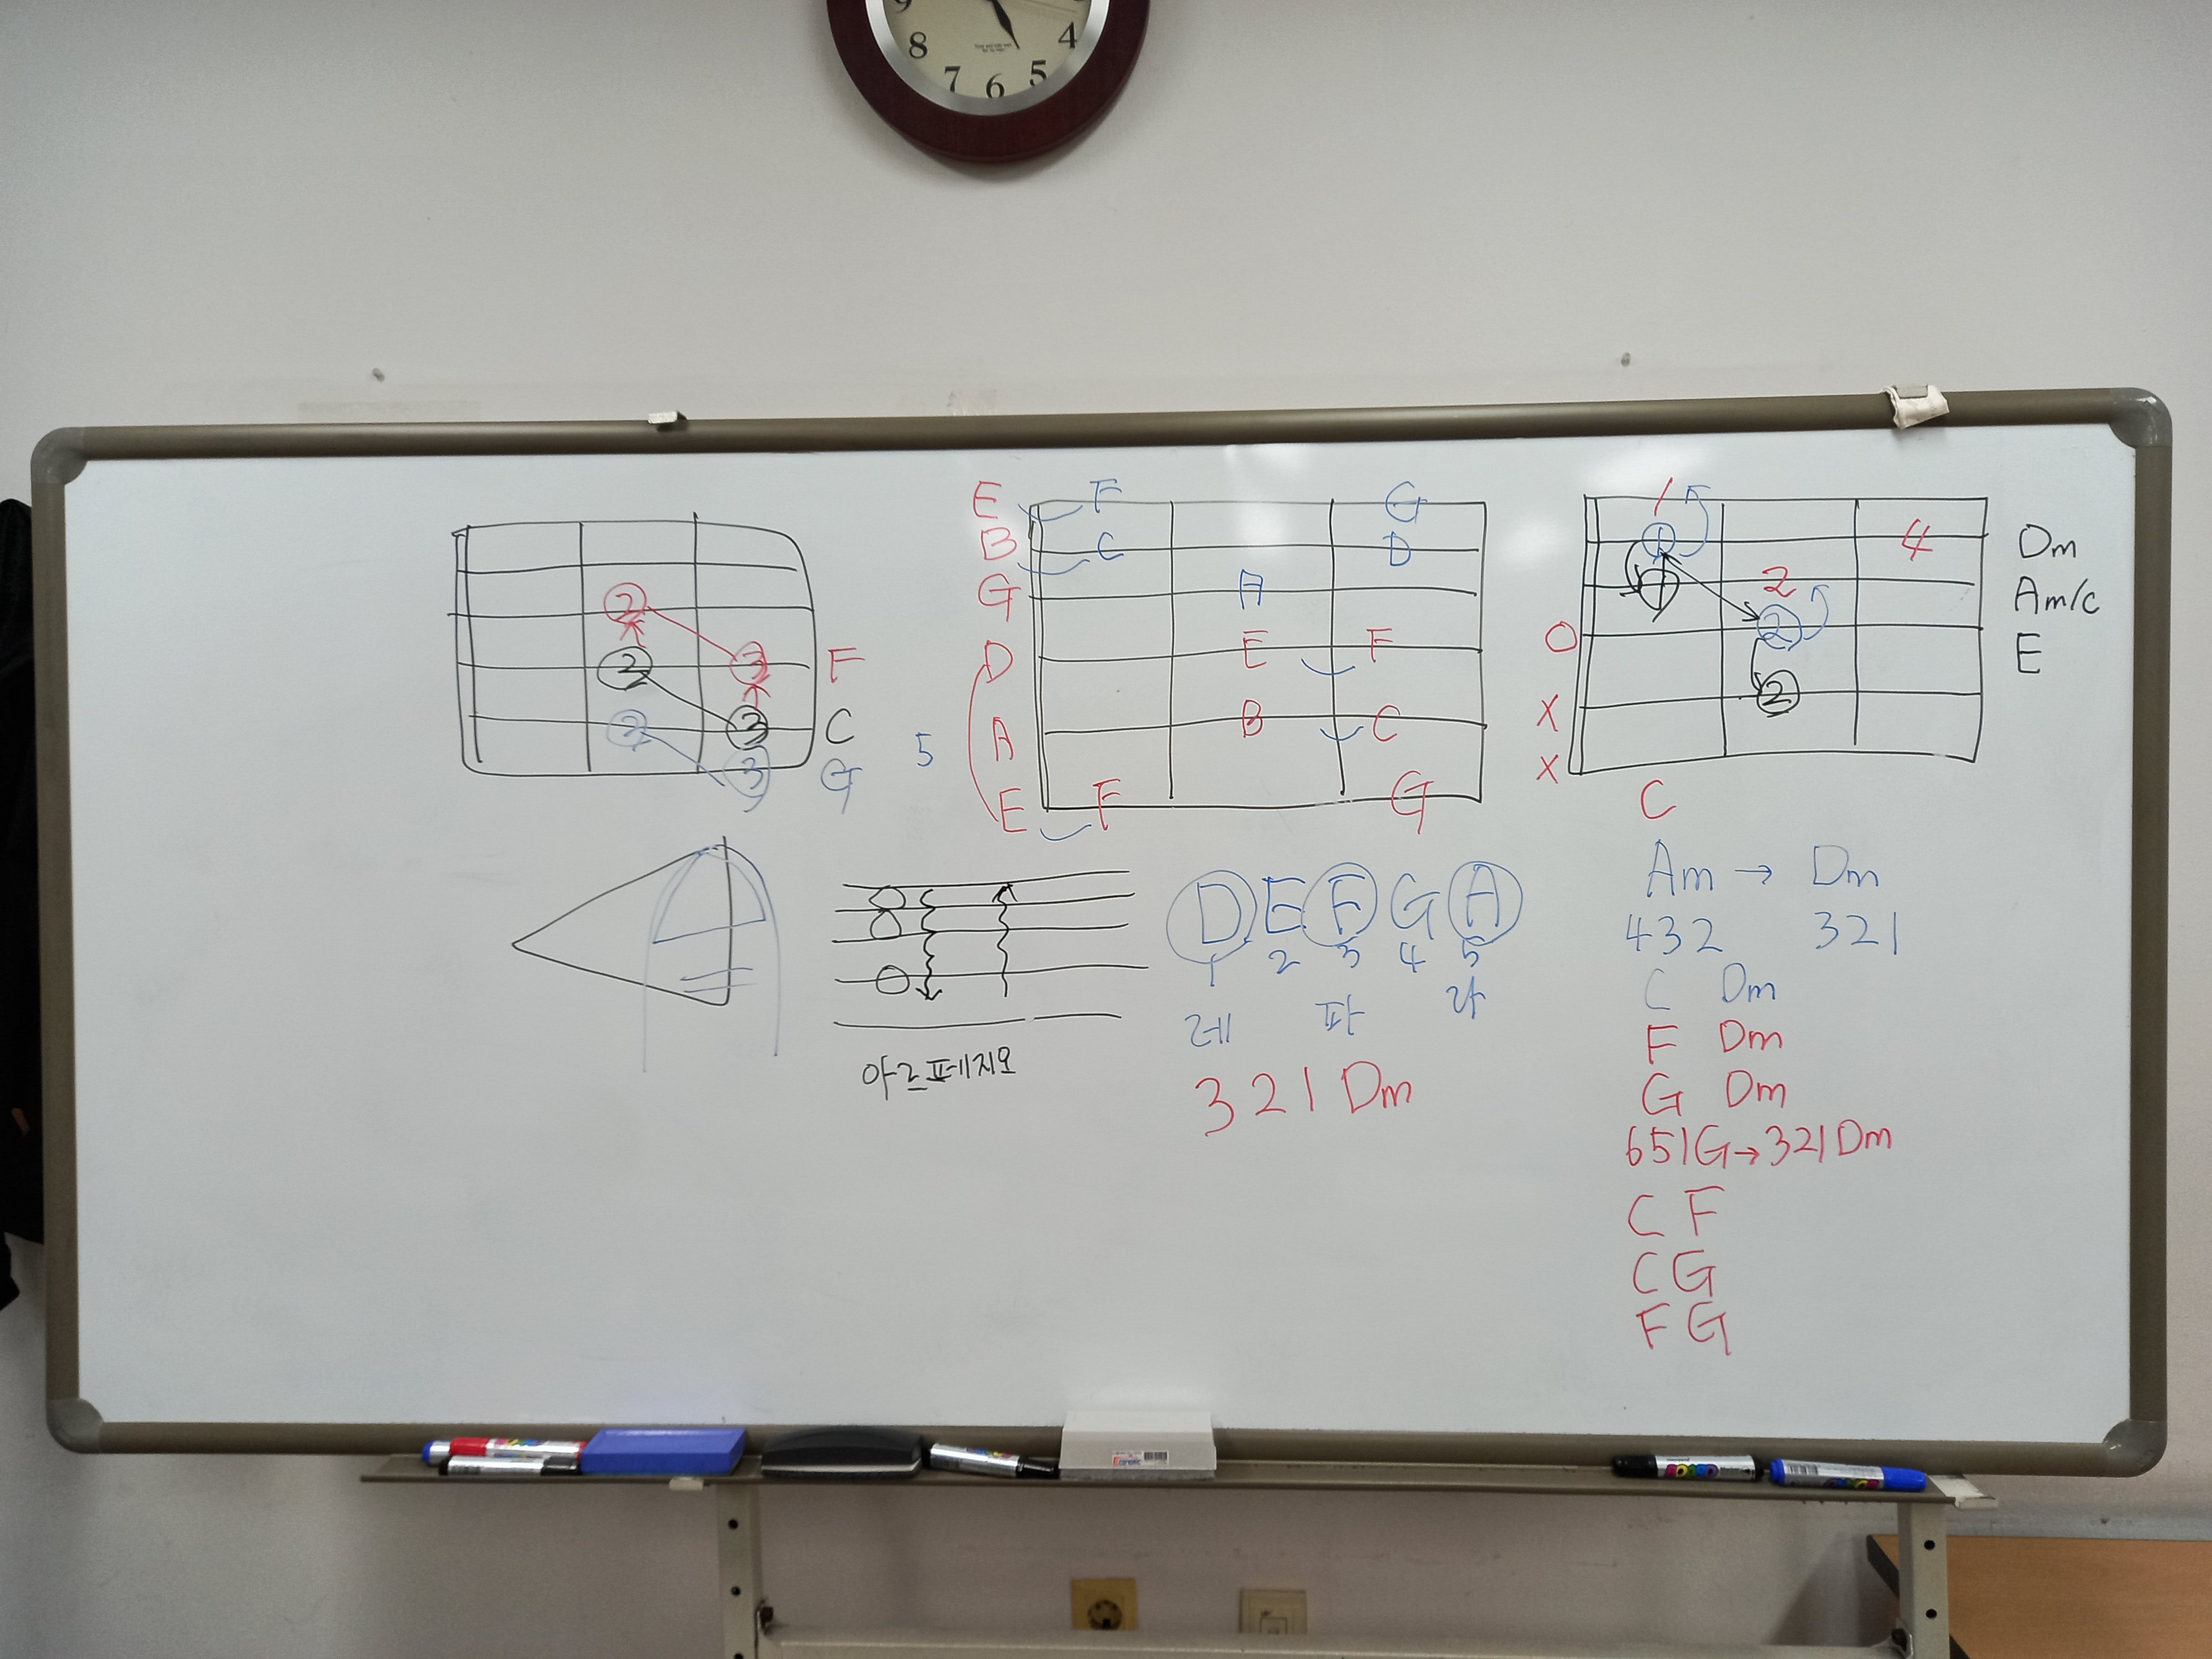 9 8 7 6 5 4
2
2 3 F
3 C
2 3 G
5
E F G
B C D
G A
D E F
A B C
E F G
1
1 4 Dm
1 2 Am/C
O 2 E
X 2
X
C
아르페지오
D E F G A
1 2 3 4 5
레 파 라
3 2 1 Dm
Am → Dm
432 321
C Dm
F Dm
G Dm
651G→321Dm
C F
C G
F G